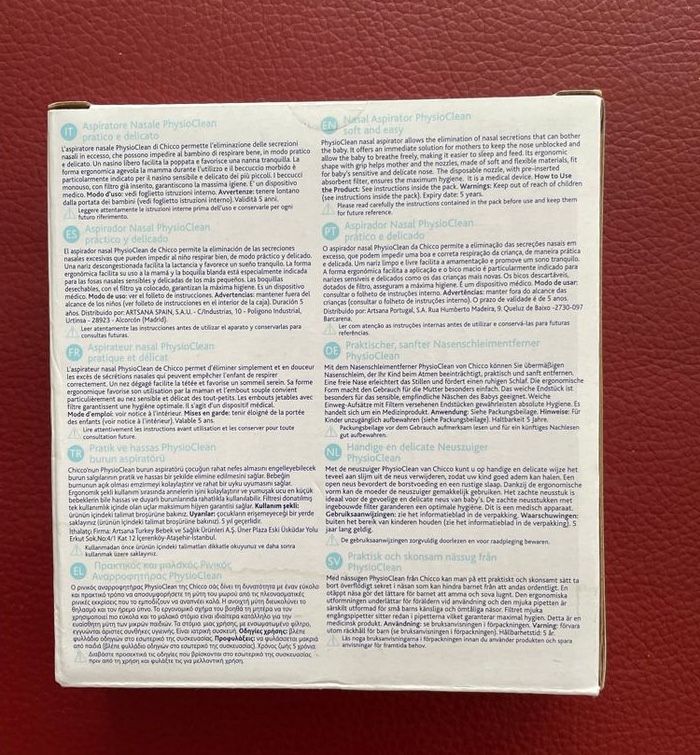 IT Aspiratore Nasale PhysioClean
pratico e delicato
L'aspiratore nasale PhysioClean di Chicco permette l'eliminazione delle secrezioni
nasali in eccesso, che possono impedire al bambino di respirare bene, in modo pratico
e delicato. Un nasino libero facilita la poppata e favorisce una nanna tranquilla. La
forma ergonomica agevola la mamma durante l'utilizzo e il beccuccio morbido è
particolarmente indicato per il nasino sensibile e delicato dei più piccoli. I beccucci
monouso, con filtro già inserito, garantiscono la massima igiene. E' un dispositivo
medico. Modo d'uso: vedi foglietto istruzioni interno. Avvertenze: tenere lontano
dalla portata dei bambini (vedi foglietto istruzioni interno). Validità 5 anni.
Leggere attentamente le istruzioni interne prima dell'uso e conservarle per ogni
futuro riferimento.
ES Aspirador Nasal PhysioClean
práctico y delicado
El aspirador nasal PhysioClean de Chicco permite la eliminación de las secreciones
nasales excesivas que pueden impedir al niño respirar bien, de modo práctico y delicado.
Una nariz descongestionada facilita la lactancia y favorece un sueño tranquilo. La forma
ergonómica facilita su uso a la mamá y la boquilla blanda está especialmente indicada
para las fosas nasales sensibles y delicadas de los más pequeños. Las boquillas
desechables, con el filtro ya colocado, garantizan la máxima higiene. Es un dispositivo
médico. Modo de uso: ver el folleto de instrucciones. Advertencias: mantener fuera del
alcance de los niños (ver folleto de instrucciones en el interior de la caja). Duración 5
años. Distribuido por: ARTSANA SPAIN, S.A.U. - C/Industrias, 10 - Polígono Industrial,
Urtinsa - 28923 - Alcorcón (Madrid).
Leer atentamente las instrucciones antes de utilizar el aparato y conservarlas para
consultas futuras.
FR Aspirateur nasal PhysioClean
pratique et délicat
L'aspirateur nasal PhysioClean de Chicco permet d'éliminer simplement et en douceur
les excès de sécrétions nasales qui peuvent empêcher l'enfant de respirer
correctement. Un nez dégagé facilite la tétée et favorise un sommeil serein. Sa forme
ergonomique favorise son utilisation par la maman et l'embout souple convient
particulièrement au nez sensible et délicat des tout-petits. Les embouts jetables avec
filtre garantissent une hygiène optimale. Il s'agit d'un dispositif médical.
Mode d'emploi: voir notice à l'intérieur. Mises en garde: tenir éloigné de la portée
des enfants (voir notice à l'intérieur). Valable 5 ans.
Lire attentivement les instructions avant utilisation et les conserver pour toute
consultation future.
TR Pratik ve hassas PhysioClean
burun aspiratörü
Chicco'nun PhysioClean burun aspiratörü çocuğun rahat nefes almasını engelleyebilecek
burun salgılarının pratik ve hassas bir şekilde elimine edilmesini sağlar. Bebeğin
burnunun açık olması emzirmeyi kolaylaştırır ve rahat bir uyku uyumasını sağlar.
Ergonomik şekli kullanım sırasında annelerin işini kolaylaştırır ve yumuşak ucu en küçük
bebeklerin bile hassas ve duyarlı burunlarında rahatlıkla kullanılabilir. Filtresi donatılmış
tek kullanımlık içinde olan uçlar maksimum hijyen garantisi sağlar. Kullanım şekli:
ürünün içindeki talimat broşürüne bakınız. Uyarılar: çocukların erişemeyeceği bir yerde
saklayınız (ürünün içindeki talimat broşürüne bakınız). 5 yıl geçerlidir.
İthalatçı Firma: Artsana Turkey Bebek ve Sağlık Ürünleri A.Ş. Üner Plaza Eski Üsküdar Yolu
Erkut Sok.No:4/1 Kat 12 İçerenköy-Ataşehir-İstanbul.
Kullanmadan önce ürünün içindeki talimatları dikkatle okuyunuz ve daha sonra
kullanmak üzere saklayınız.
EL Πρακτικός και μαλακός Ρινικός
Αναρροφητήρας PhysioClean
Ο ρινικός αναρροφητήρας PhysioClean της Chicco σάς δίνει τη δυνατότητα με έναν εύκολο
και πρακτικό τρόπο να απομακρύνετε τη μύτη του μωρού από τις πλεονασματικές
ρινικές εκκρίσεις που το εμποδίζουν να αναπνέει καλά. Η ανοιχτή μύτη διευκολύνει το
θηλασμό και τον ήρεμο ύπνο. Το εργονομικό σχήμα του βοηθά τη μητέρα να τον
χρησιμοποιεί πιο εύκολα και το μαλακό στόμιο είναι ιδιαίτερα κατάλληλο για την
ευαίσθητη μύτη των μικρών παιδιών. Τα στόμια μιας χρήσης, με ενσωματωμένο φίλτρο,
εγγυώνται άριστες συνθήκες υγιεινής. Είναι ιατρική συσκευή. Οδηγίες χρήσης: βλέπε
φυλλάδιο οδηγιών στο εσωτερικό της συσκευασίας. Προφυλάξεις: να φυλάσσεται μακριά
από παιδιά (βλέπε φυλλάδιο οδηγιών στο εσωτερικό της συσκευασίας). Χρόνος ζωής: 5 χρόνια.
Διαβάστε προσεκτικά τις οδηγίες που βρίσκονται στο εσωτερικό της συσκευασίας
πριν από τη χρήση και φυλάξτε τις για μελλοντική χρήση.
EN Nasal Aspirator PhysioClean
soft and easy
PhysioClean nasal aspirator allows the elimination of nasal secretions that can bother
the baby. It offers an immediate solution for mothers to keep the nose unblocked and
allow the baby to breathe freely, making it easier to sleep and feed. Its ergonomic
shape with grip helps mother and the nozzles, made of soft and flexible materials, fit
for baby's sensitive and delicate nose. The disposable nozzle, with pre-inserted
absorbent filter, ensures the maximum hygiene. It is a medical device. How to Use
the Product: See instructions inside the pack. Warnings: Keep out of reach of children
(see instructions inside the pack). Expiry date: 5 years.
Please read carefully the instructions contained in the pack before use and keep them
for future reference.
PT Aspirador Nasal PhysioClean
prático e delicado
O aspirador nasal PhysioClean da Chicco permite a eliminação das secreções nasais em
excesso, que podem impedir uma boa e correta respiração da criança, de maneira prática
e delicada. Um nariz limpo e livre facilita a amamentação e promove um sono tranquilo.
A forma ergonómica facilita a aplicação e o bico macio é particularmente indicado para
narizes sensíveis e delicados como os das crianças mais novas. Os bicos descartáveis,
dotados de filtro, asseguram a máxima higiene. É um dispositivo médico. Modo de usar:
consultar o folheto de instruções interno. Advertências: manter fora do alcance das
crianças (consultar o folheto de instruções interno). O prazo de validade é de 5 anos.
Distribuído por: Artsana Portugal, S.A. Rua Humberto Madeira, 9. Queluz de Baixo -2730-097
Barcarena.
Ler com atenção as instruções internas antes de utilizar e conservá-las para futuras
referências.
DE Praktischer, sanfter Nasenschleimentferner
PhysioClean
Mit dem Nasenschleimentferner PhysioClean von Chicco können Sie übermäßigen
Nasenschleim, der Ihr Kind beim Atmen beeinträchtigt, praktisch und sanft entfernen.
Eine freie Nase erleichtert das Stillen und fördert einen ruhigen Schlaf. Die ergonomische
Form macht den Gebrauch für die Mutter besonders einfach. Das weiche Endstück ist
besonders für das sensible, empfindliche Näschen des Babys geeignet. Weiche
Einweg-Aufsätze mit Filtern versehenen Endstücken gewährleisten absolute Hygiene. Es
handelt sich um ein Medizinprodukt. Anwendung: Siehe Packungsbeilage. Hinweise: Für
Kinder unzugänglich aufbewahren (siehe Packungsbeilage). Haltbarkeit 5 Jahre.
Packungsbeilage vor dem Gebrauch aufmerksam lesen und für ein künftiges Nachlesen
gut aufbewahren.
NL Handige en delicate Neuszuiger
PhysioClean
Met de neuszuiger PhysioClean van Chicco kunt u op handige en delicate wijze het
teveel aan slijm uit de neus verwijderen, zodat uw kind goed adem kan halen. Een
open neus bevordert de borstvoeding en een rustige slaap. Dankzij de ergonomische
vorm kan de moeder de neuszuiger gemakkelijk gebruiken. Het zachte neusstuk is
ideaal voor de gevoelige en delicate neus van baby's. De zachte neusstukken met
ingebouwde filter garanderen een optimale hygiëne. Dit is een medisch apparaat.
Gebruiksaanwijzingen: zie het informatieblad in de verpakking. Waarschuwingen:
buiten het bereik van kinderen houden (zie het informatieblad in de verpakking). 5
jaar lang geldig.
De gebruiksaanwijzingen zorgvuldig doorlezen en voor raadpleging bewaren.
SV Praktisk och skonsam nässug från
PhysioClean
Med nässugen PhysioClean från Chicco kan man på ett praktiskt och skonsamt sätt ta
bort överflödigt sekret i näsan som kan hindra barnet från att andas ordentligt. En
otäppt näsa gör det lättare för barnet att amma och sova lugnt. Den ergonomiska
utformningen underlättar för föräldern vid användning och den mjuka pipetten är
särskilt utformad för små barns känsliga och ömtåliga näsor. Filtret mjuka
engångspipetter sitter redan i pipetterna vilket garanterar maximal hygien. Detta är en
medicinsk produkt. Användning: se bruksanvisningen i förpackningen. Varning: förvara
utom räckhåll för barn (se bruksanvisningen i förpackningen). Hållbarhetstid: 5 år.
Läs noga bruksanvisningarna i förpackningen innan du använder produkten och spara
anvisningar för framtida behov.